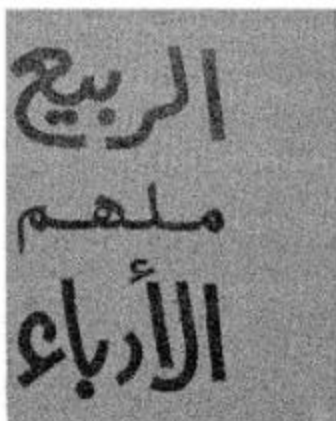 الربيع
ملهم
الأدباء